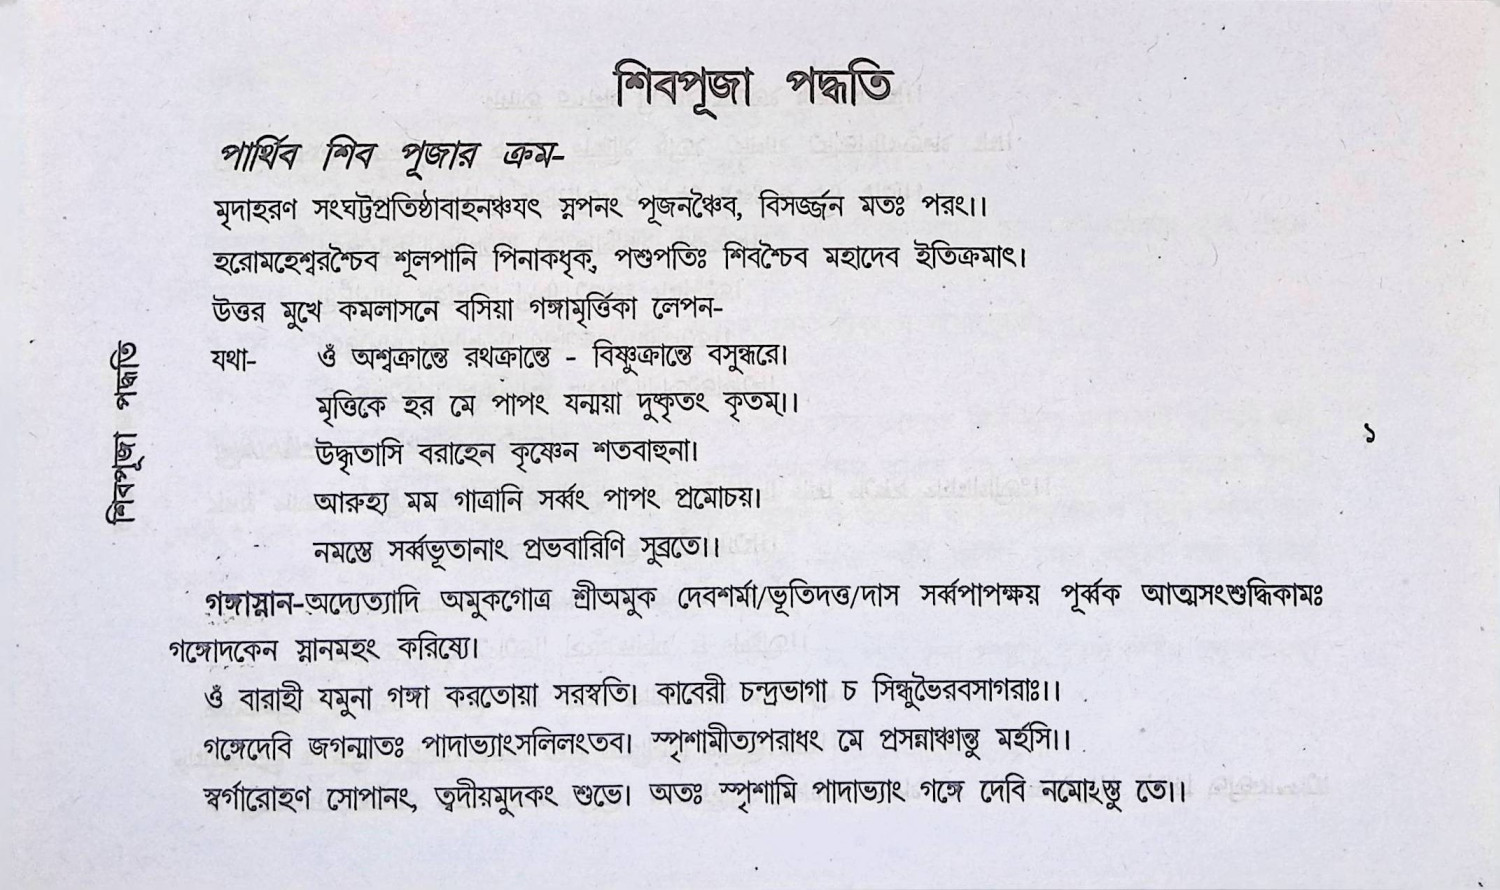 শিবপূজা পদ্ধতি
পার্থিব শিব পূজার ক্রম-
মৃদাহরণ সংঘট্টপ্রতিষ্ঠাবাহনঞ্চযৎ স্নপনং পূজনঞ্চৈব, বিসর্জ্জন মতঃ পরং।।
হরোমহেশ্বরশ্চৈব শূলপানি পিনাকধৃক্, পশুপতিঃ শিবশ্চৈব মহাদেব ইতিক্রমাৎ।
উত্তর মুখে কমলাসনে বসিয়া গঙ্গামৃর্ত্তিকা লেপন-
যথা- ওঁ অশ্বক্রান্তে রথক্রান্তে - বিষ্ণুক্রান্তে বসুন্ধরে।
মৃত্তিকে হর মে পাপং যন্ময়া দুষ্কৃতং কৃতম্।।
উদ্ধৃতাসি বরাহেন কৃষ্ণেন শতবাহুনা।
আরুহ্য মম গাত্রানি সর্ব্বং পাপং প্রমোচয়।
নমস্তে সর্ব্বভূতানাং প্রভবারিণি সুব্রতে।।
গঙ্গাস্নান-অদ্যেত্যাদি অমুকগোত্র শ্রীঅমুক দেবশর্মা/ভূতিদত্ত/দাস সর্ব্বপাপক্ষয় পূর্ব্বক আত্মসংশুদ্ধিকামঃ
গঙ্গোদকেন স্নানমহং করিষ্যে।
ওঁ বারাহী যমুনা গঙ্গা করতোয়া সরস্বতি। কাবেরী চন্দ্রভাগা চ সিন্ধুভৈরবসাগরাঃ।।
গঙ্গেদেবি জগন্মাতঃ পাদাভ্যাংসলিলংতব। স্পৃশামীত্যপরাধং মে প্রসন্নাঞ্চান্তু মর্হসি।।
স্বর্গারোহণ সোপানং, ত্বদীয়মুদকং শুভে। অতঃ স্পৃশামি পাদাভ্যাং গঙ্গে দেবি নমোঽস্তু তে।।
শিবপূজা পদ্ধতি
১